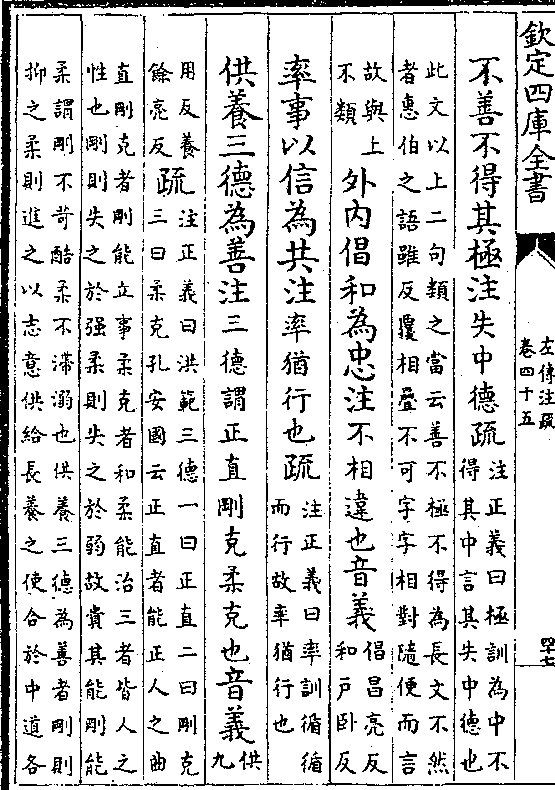 欽定四庫全書
左傳注疏
卷四十五
不善不得其極注失中德疏注正義曰極訓為中不
得其中言其失中德也
此文以上二句類之當云善不極不得為長文不然
者惠伯之語雖反覆相疊不可字字相對隨便而言
故與上
不類
外內倡和為忠注不相違也音義倡昌亮反
和戸卧反
率事以信為共注率猶行也疏注正義曰率訓循循
而行故率猶行也
供養三德為善注三德謂正直剛克柔克也音義供
九
用反養
餘亮反
疏注正義曰洪範三德一曰正直二曰剛克
三曰柔克孔安國云正直者能正人之曲
直剛克者剛能立事柔克者和柔能治三者皆人之
性也剛則失之於强柔則失之於弱故貴其能剛能
柔謂剛不苛酷柔不滯溺也供養三德為善者剛則
抑之柔則進之以志意供給長養之使合於中道各